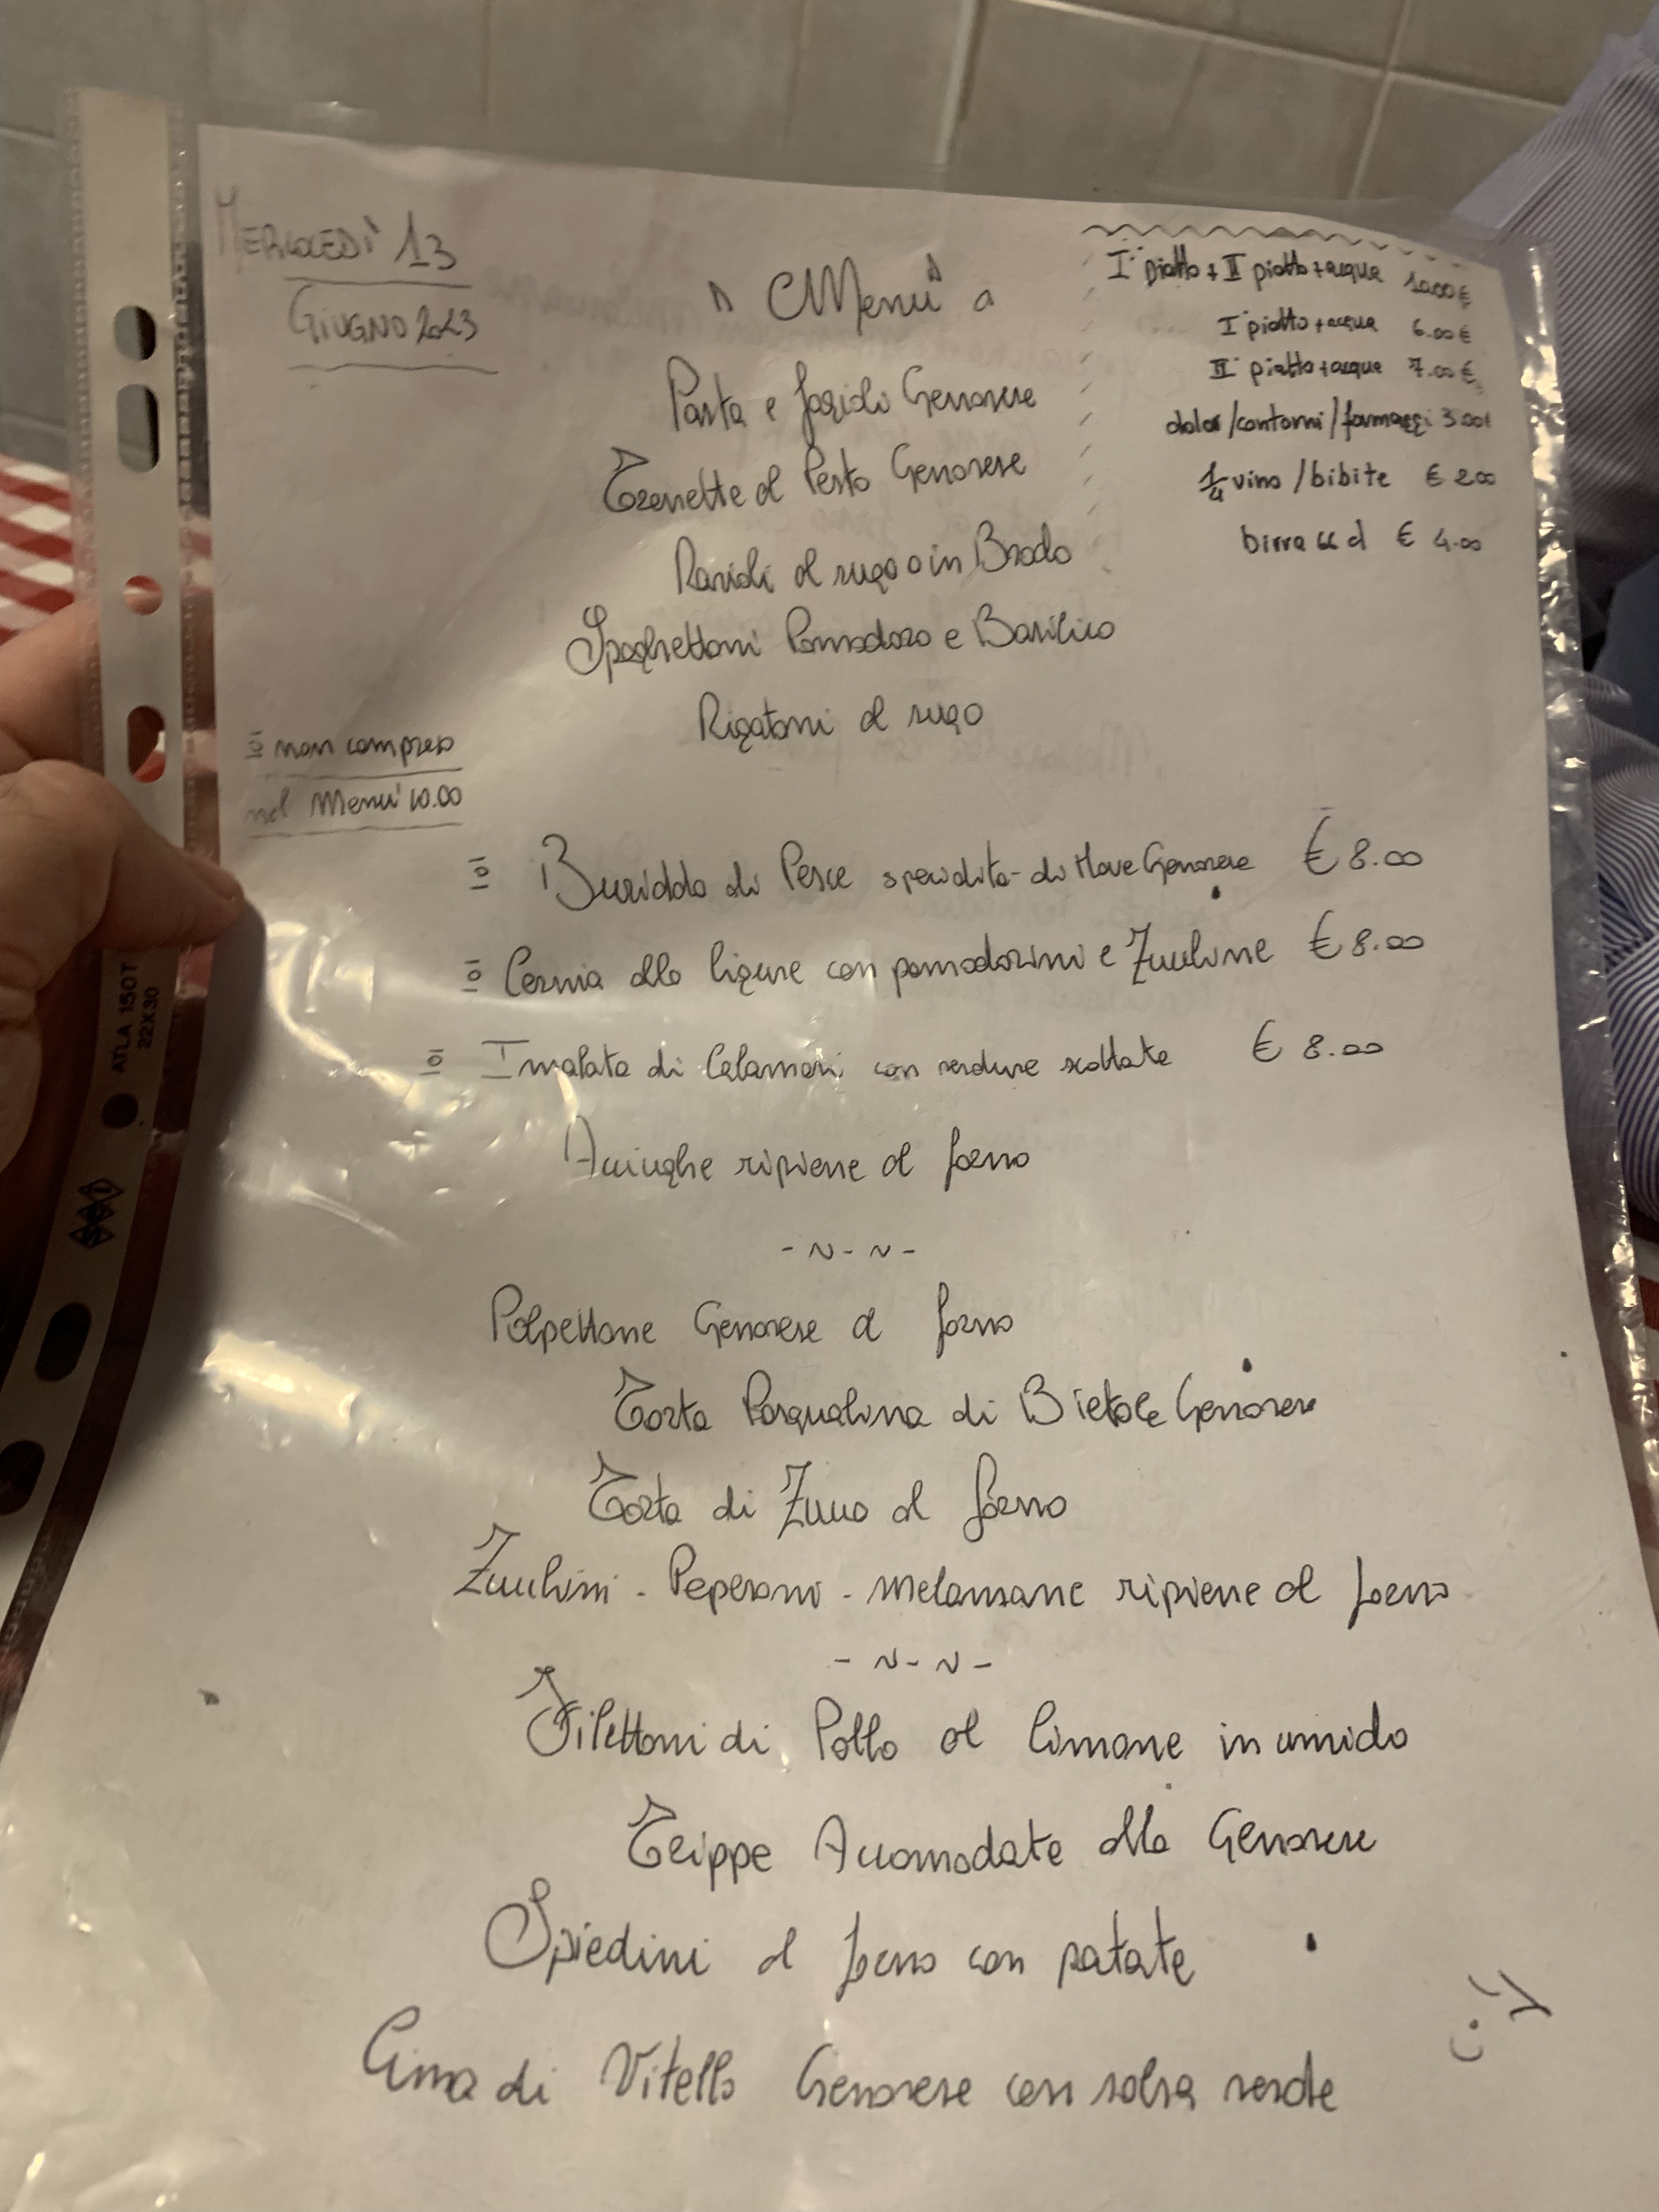 MERCOLEDÌ 13
GIUGNO 2023
Menù
I° piatto + II piatto + acqua 10.00 €
I° piatto + acqua 6.00 €
II° piatto + acqua 7.00 €
dolci/contorni/formaggi 3.00€
1/4 vino / bibite € 2.00
birra € 4.00
Pasta e fagioli Genovese
Trenette al Pesto Genovese
Ravioli al sugo o in Brodo
Spaghettoni Pomodoro e Basilico
Rigatoni al sugo
non compreso
nel Menù 10.00
Buridda di Pesce di Mare Genovese € 8.00
Cernia alla ligure con pomodorini e Zucchine € 8.00
Insalata di Calamari con verdure scottate € 8.00
Acciughe ripiene al forno
- ~ - ~ -
Polpettone Genovese al forno
Torta Pasqualina di Bietole Genovese
Torta di Zucca al forno
Zucchini - Peperoni - melanzane ripiene al forno
- ~ - ~ -
Filettoni di Pollo al limone in umido
Trippe Accomodate alla Genovese
Spiedini al forno con patate
Cima di Vitello Genovese con salsa verde
ATLA 150T
22X30
SEI